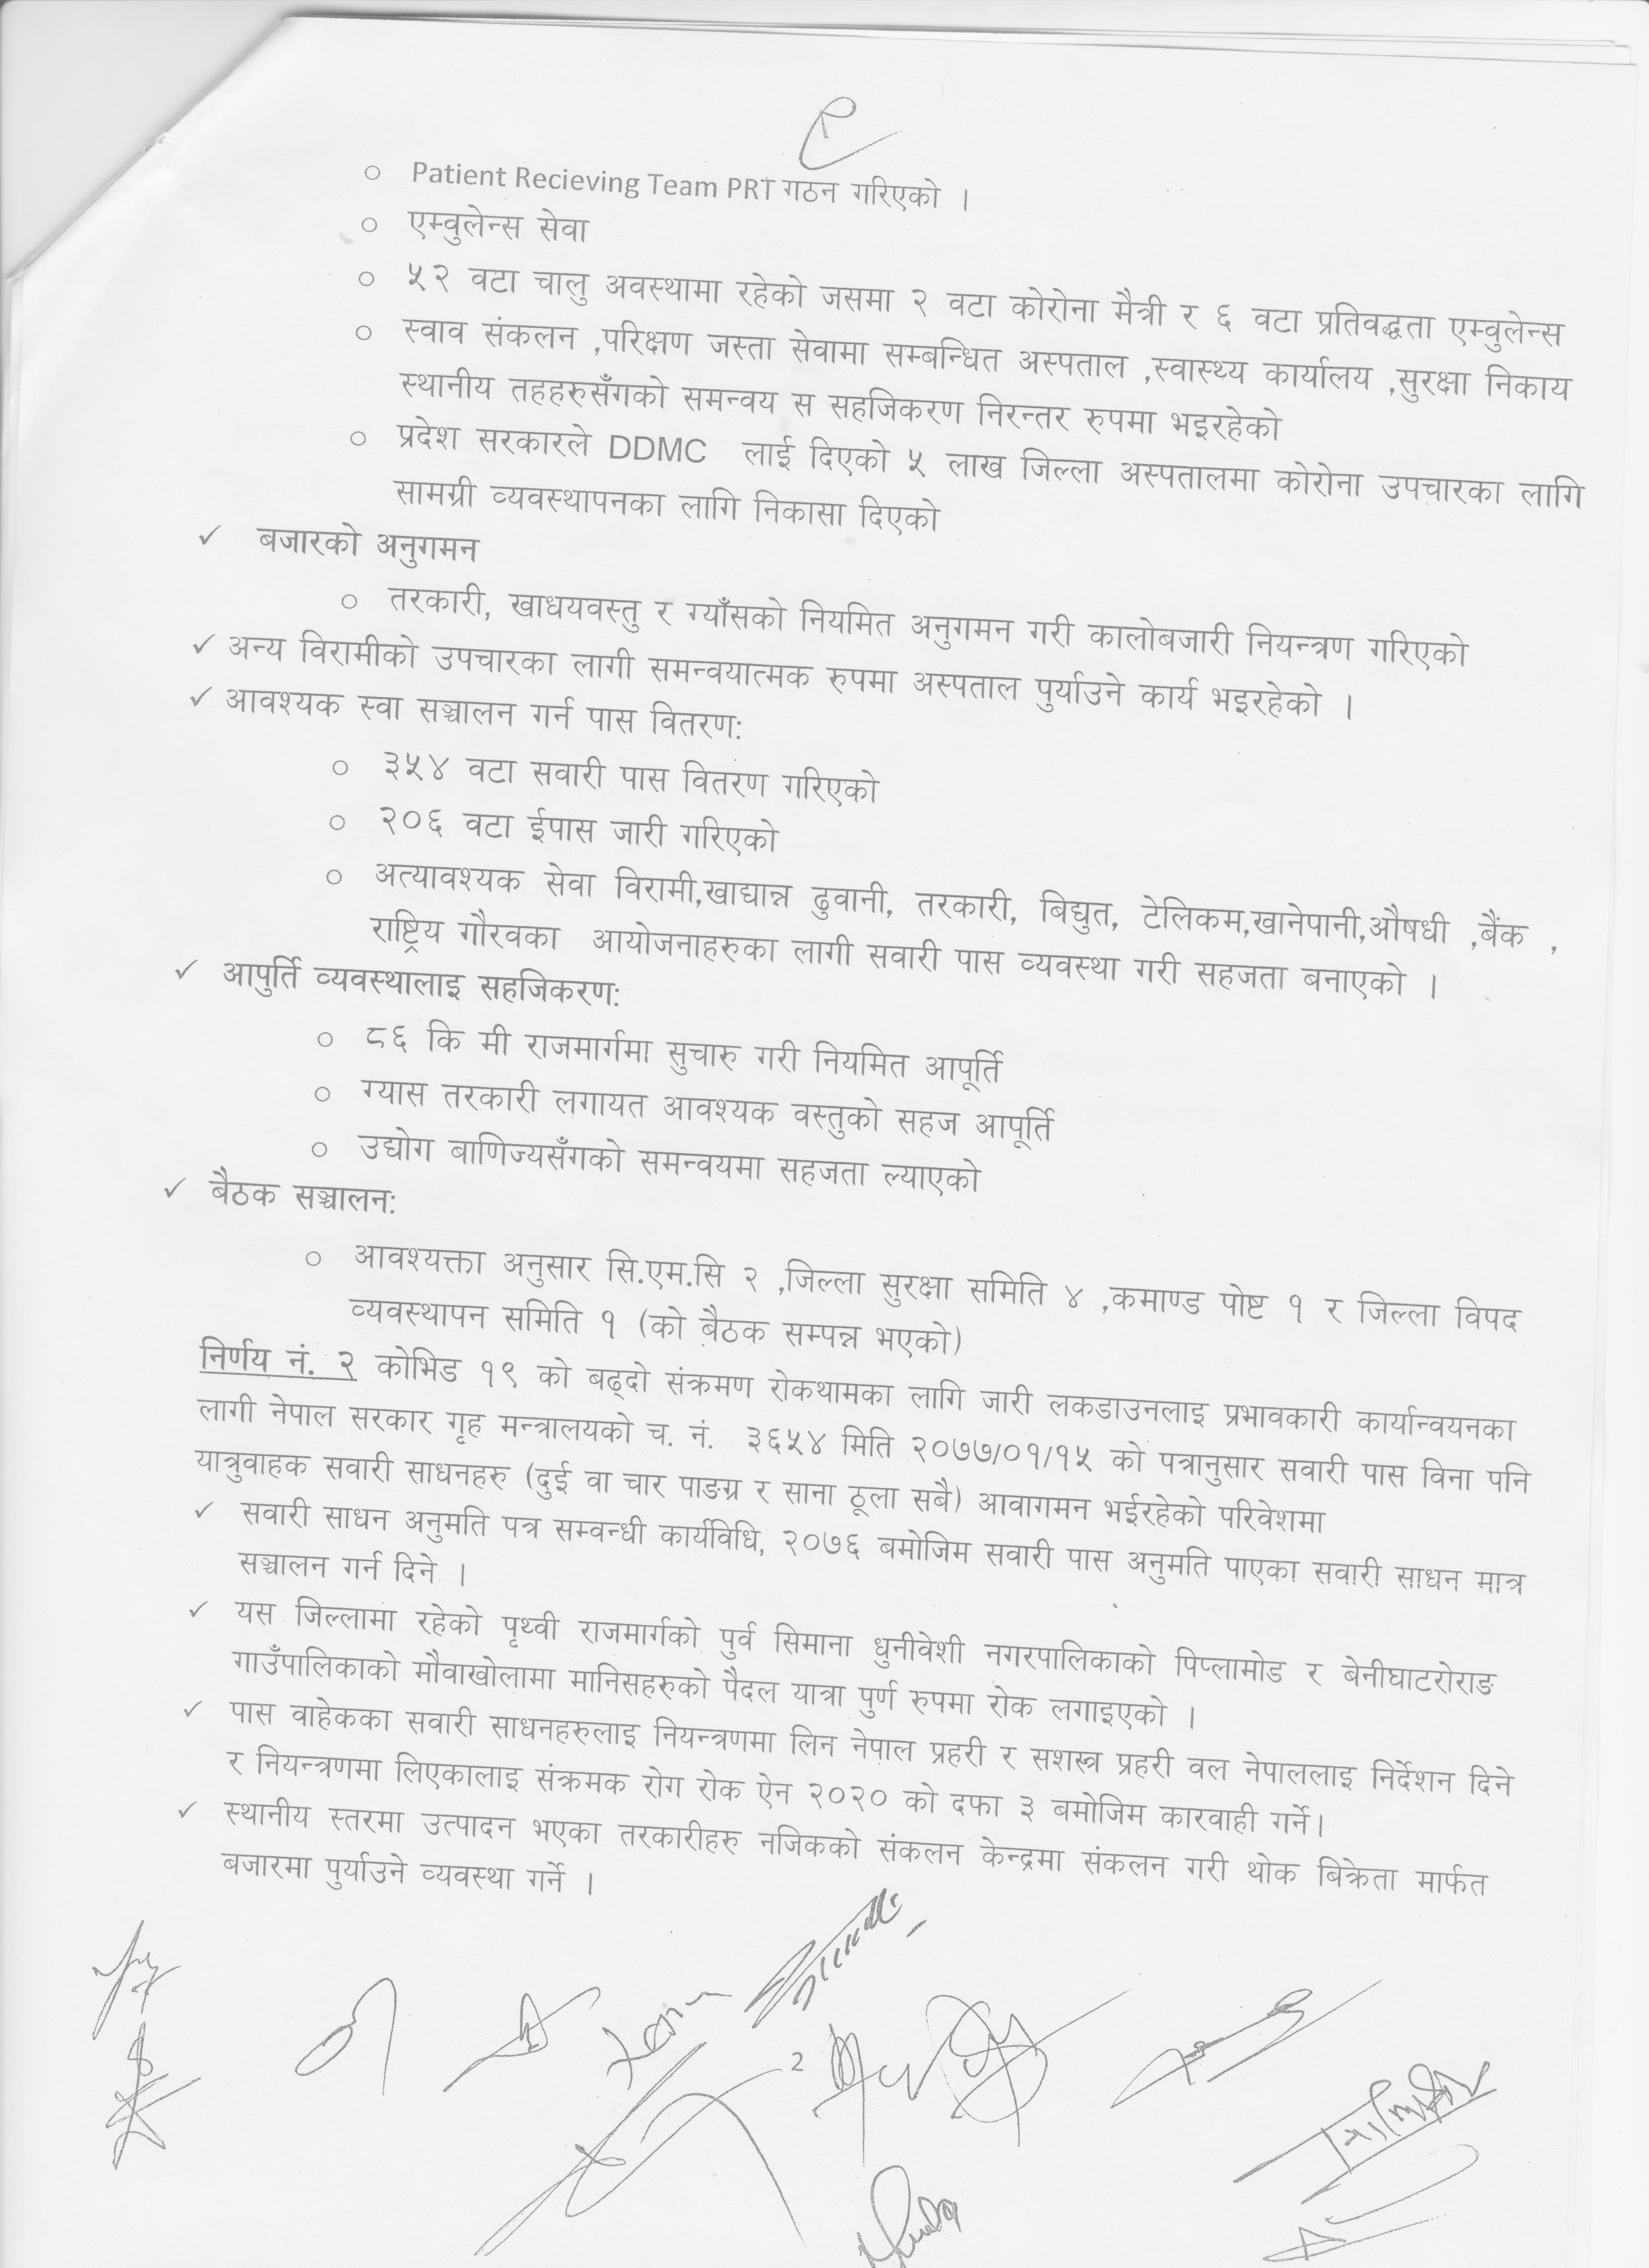 ○ Patient Recieving Team PRT गठन गरिएको ।
○ एम्वुलेन्स सेवा
○ ५२ वटा चालु अवस्थामा रहेको जसमा २ वटा कोरोना मैत्री र ६ वटा प्रतिवद्धता एम्वुलेन्स
○ स्वाव संकलन ,परिक्षण जस्ता सेवामा सम्बन्धित अस्पताल ,स्वास्थ्य कार्यालय ,सुरक्षा निकाय
स्थानीय तहहरुसँगको समन्वय स सहजिकरण निरन्तर रुपमा भइरहेको
○ प्रदेश सरकारले DDMC लाई दिएको ५ लाख जिल्ला अस्पतालमा कोरोना उपचारका लागि
सामग्री व्यवस्थापनका लागि निकासा दिएको
✓ बजारको अनुगमन
○ तरकारी, खाधयवस्तु र ग्याँसको नियमित अनुगमन गरी कालोबजारी नियन्त्रण गरिएको
✓ अन्य विरामीको उपचारका लागी समन्वयात्मक रुपमा अस्पताल पुर्याउने कार्य भइरहेको ।
✓ आवश्यक स्वा सञ्चालन गर्न पास वितरण:
○ ३५४ वटा सवारी पास वितरण गरिएको
○ २०६ वटा ईपास जारी गरिएको
○ अत्यावश्यक सेवा विरामी,खाद्यान्न ढुवानी, तरकारी, बिद्युत, टेलिकम,खानेपानी,औषधी ,बैंक ,
राष्ट्रिय गौरवका आयोजनाहरुका लागी सवारी पास व्यवस्था गरी सहजता बनाएको ।
✓ आपुर्ति व्यवस्थालाइ सहजिकरण:
○ ८६ कि मी राजमार्गमा सुचारु गरी नियमित आपूर्ति
○ ग्यास तरकारी लगायत आवश्यक वस्तुको सहज आपूर्ति
○ उद्योग बाणिज्यसँगको समन्वयमा सहजता ल्याएको
✓ बैठक सञ्चालन:
○ आवश्यक्ता अनुसार सि.एम.सि २ ,जिल्ला सुरक्षा समिति ४ ,कमाण्ड पोष्ट १ र जिल्ला विपद
व्यवस्थापन समिति १ (को बैठक सम्पन्न भएको)
निर्णय नं. २ कोभिड १९ को बढ्दो संक्रमण रोकथामका लागि जारी लकडाउनलाइ प्रभावकारी कार्यान्वयनका
लागी नेपाल सरकार गृह मन्त्रालयको च. नं. ३६५४ मिति २०७७/०१/१५ को पत्रानुसार सवारी पास विना पनि
यात्रुवाहक सवारी साधनहरु (दुई वा चार पाङग्र र साना ठूला सबै) आवागमन भईरहेको परिवेशमा
✓ सवारी साधन अनुमति पत्र सम्वन्धी कार्यविधि, २०७६ बमोजिम सवारी पास अनुमति पाएका सवारी साधन मात्र
सञ्चालन गर्न दिने ।
✓ यस जिल्लामा रहेको पृथ्वी राजमार्गको पुर्व सिमाना धुनीवेशी नगरपालिकाको पिप्लामोड र बेनीघाटरोराङ
गाउँपालिकाको मौवाखोलामा मानिसहरुको पैदल यात्रा पुर्ण रुपमा रोक लगाइएको ।
✓ पास वाहेकका सवारी साधनहरुलाइ नियन्त्रणमा लिन नेपाल प्रहरी र सशस्त्र प्रहरी वल नेपाललाइ निर्देशन दिने
र नियन्त्रणमा लिएकालाइ संक्रमक रोग रोक ऐन २०२० को दफा ३ बमोजिम कारवाही गर्ने।
✓ स्थानीय स्तरमा उत्पादन भएका तरकारीहरु नजिकको संकलन केन्द्रमा संकलन गरी थोक बिक्रेता मार्फत
बजारमा पुर्याउने व्यवस्था गर्ने ।
2